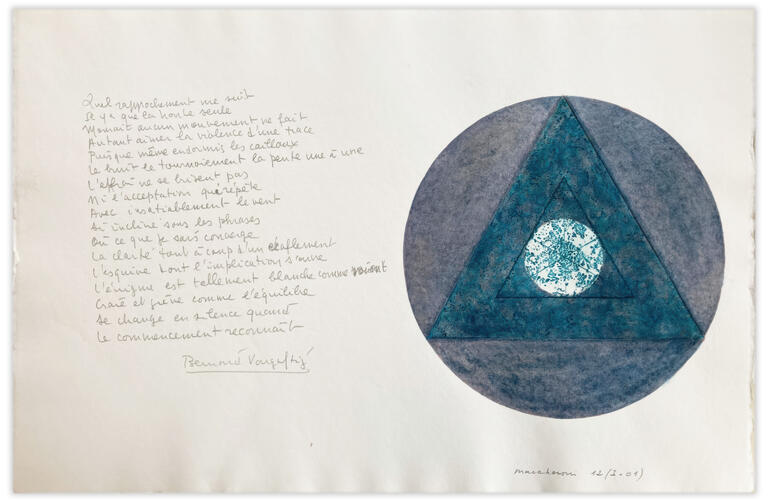 Quel rapprochement me suit
Il y a que la honte seule
Mourait aucun mouvement ne fait
Autant aimer la violence d'une trace
Puisque même endormis les cailloux
Le bruit le tournoiement la pente une à une
L'effroi ne se brisent pas
Ni l'acceptation que répète
Avec insatiablement le vent
Si incliné sous les phrases
Où ce que je sais converge
La clarté tout à coup d'un éraflement
L'esquive dont l'implication s'ouvre
L'énigme est tellement blanche comme
Craie et grève comme l'équilibre
Se change en silence quand
Le commencement reconnaît
Bernard Vargaftig
maccheroni 12/(I-01)